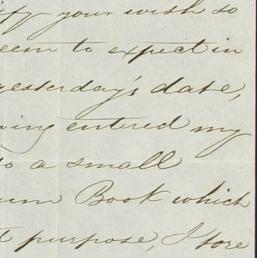 ify your wish so
eem to expect in
yesterday's date,
ing entered my
to a small
um Book which
t purpose, I tore